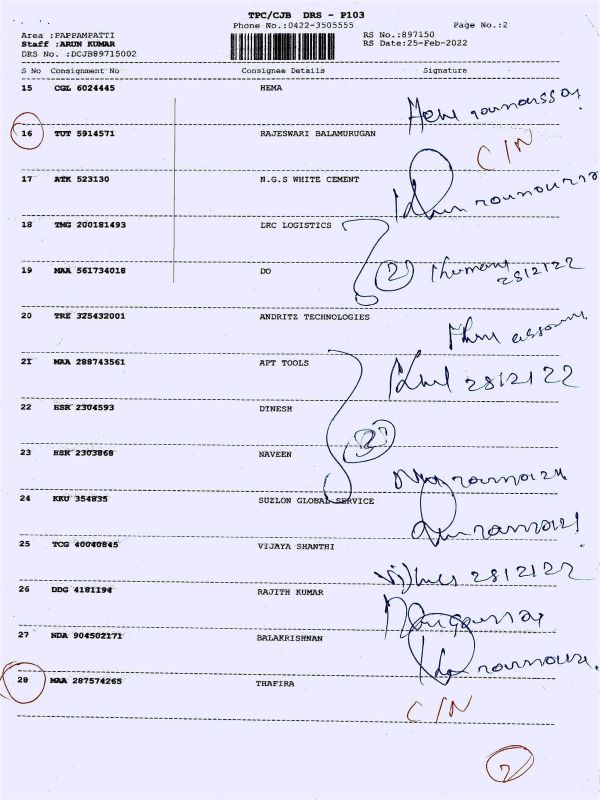 TPC/CJB DRS - P103
Phone No.:0422-3505555 Page No.:2
Area :PAPPAMPATTI RS No.:897150
Staff :ARUN KUMAR RS Date:25-Feb-2022
DRS No. :DCJB89715002
S No Consignment No Consignee Details Signature
15 CGL 6024445 HEMA
16 TUT 5914571 RAJESWARI BALAMURUGAN
C/N
17 ATK 523130 N.G.S WHITE CEMENT
18 TMG 200181493 DRC LOGISTICS
19 MAA 561734018 DO
2 28/2/22
20 TRZ 325432001 ANDRITZ TECHNOLOGIES
21 MAA 288743561 APT TOOLS
28/2/22
22 HSR 2304593 DINESH
23 HSR 2303868 NAVEEN
24 KKU 354835 SUZLON GLOBAL SERVICE
25 TCG 40040845 VIJAYA SHANTHI
28/2/22
26 DDG 4181194 RAJITH KUMAR
27 NDA 904502171 BALAKRISHNAN
28 MAA 287574265 THAFIRA
C/N
2